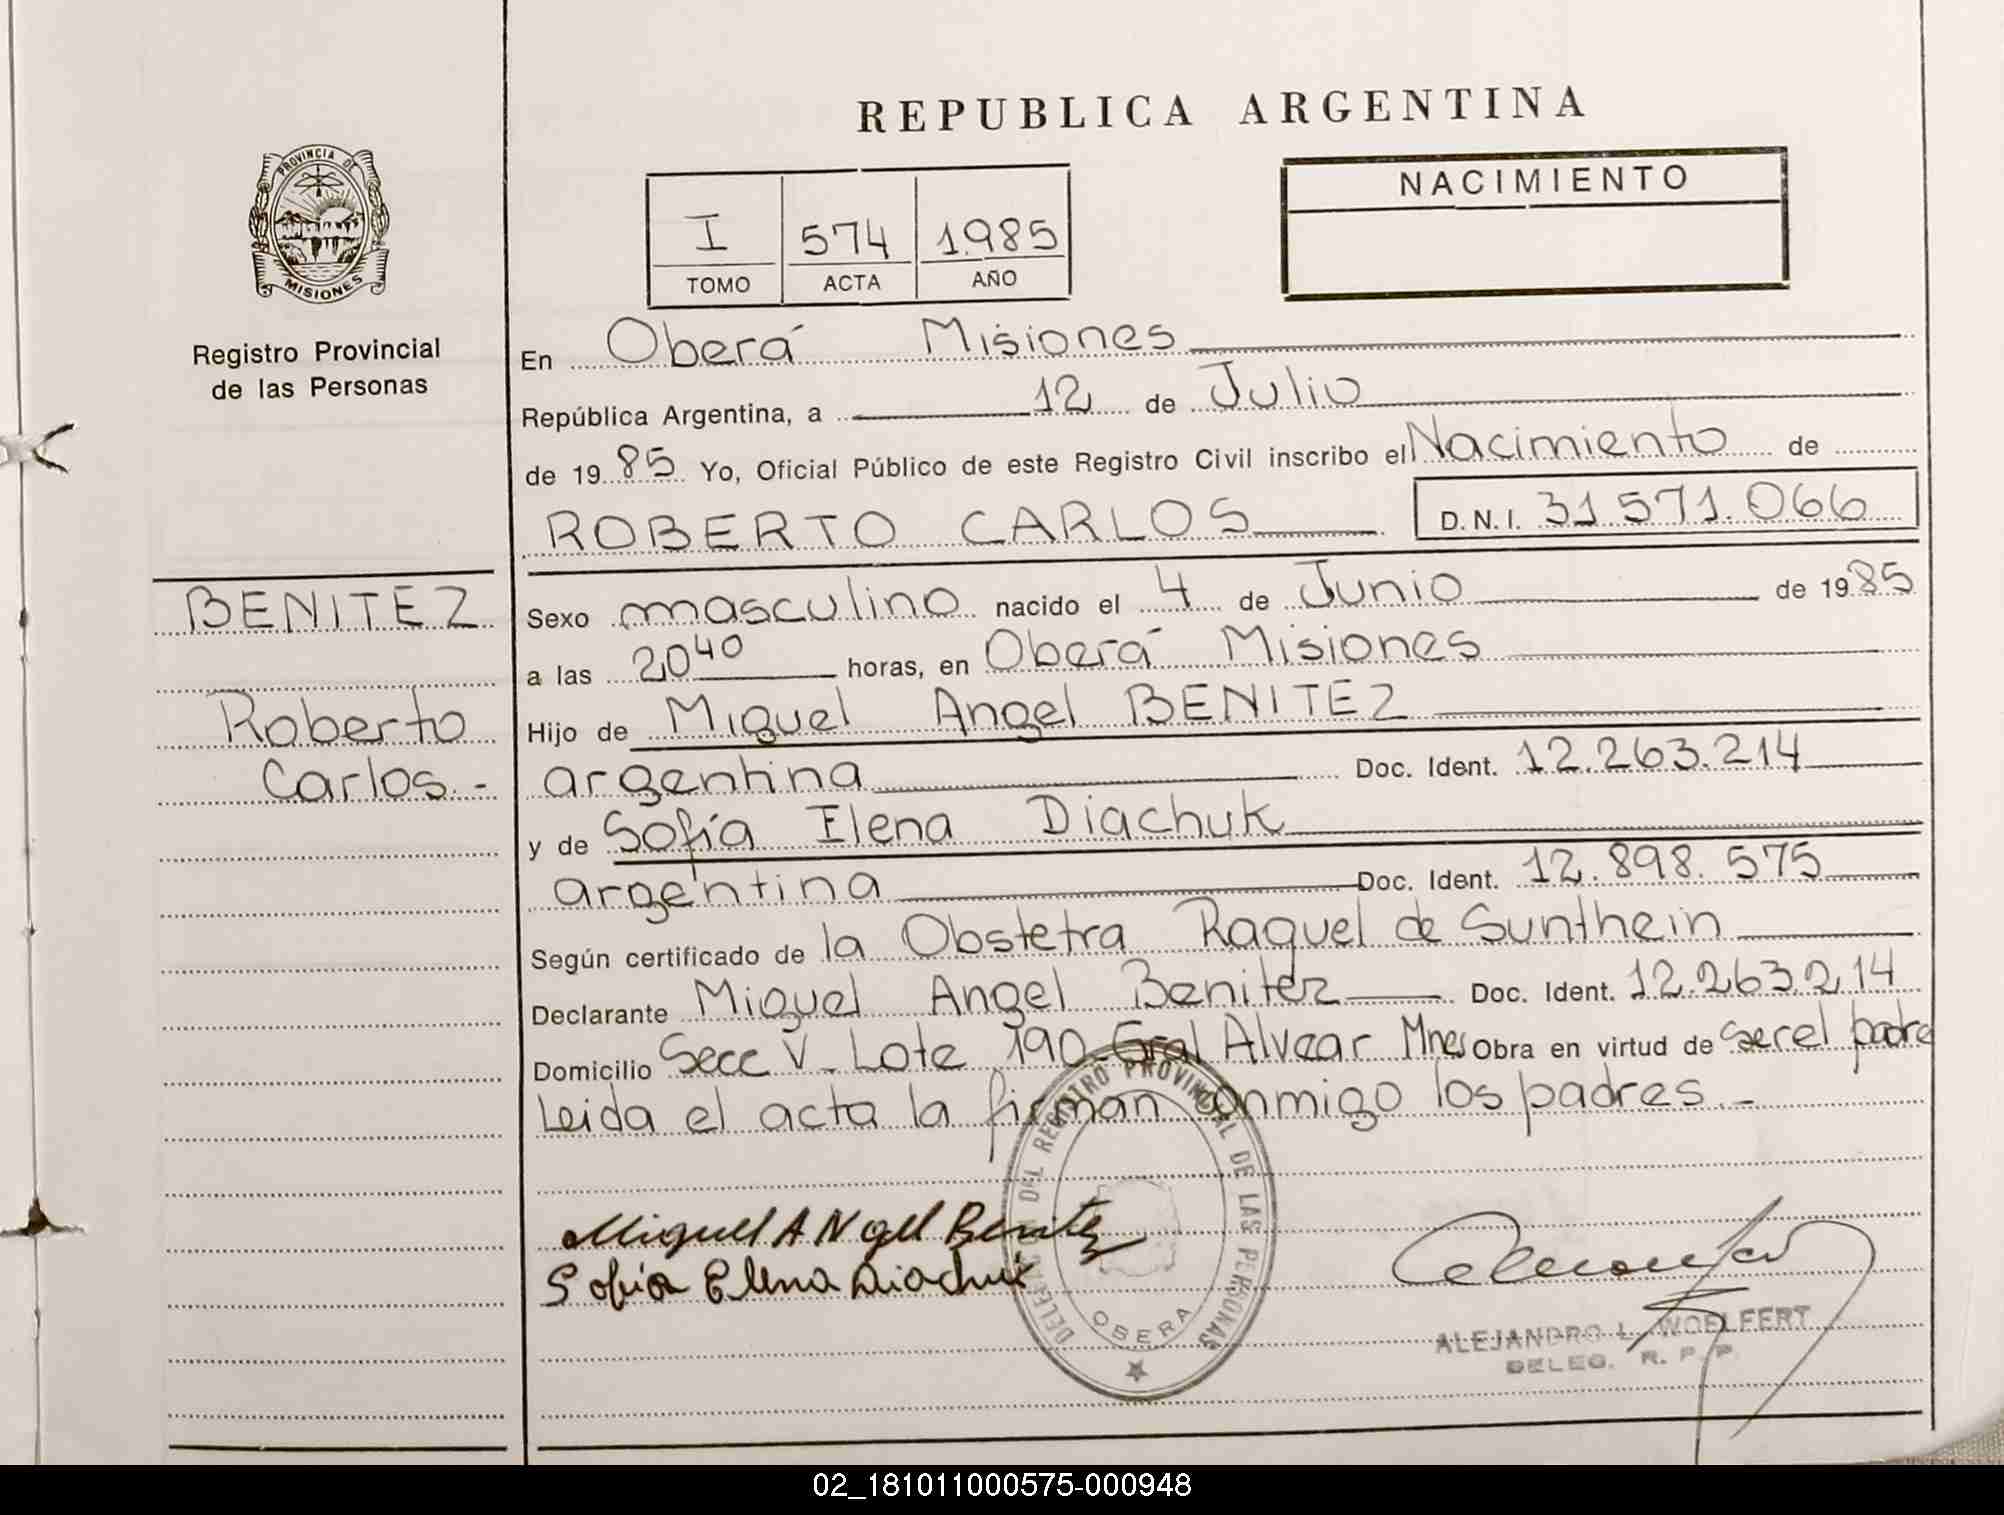 REPUBLICA ARGENTINA
PROVINCIA DE
MISIONES
Registro Provincial
de las Personas
I 574 1985
TOMO ACTA AÑO
NACIMIENTO
En Oberá Misiones
República Argentina, a 12 de Julio
de 1985 Yo, Oficial Público de este Registro Civil inscribo el Nacimiento de
ROBERTO CARLOS D.N.I. 31.571.066
BENITEZ
Roberto
Carlos.-
Sexo masculino nacido el 4 de Junio de 1985
a las 20 40 horas, en Oberá Misiones
Hijo de Miguel Angel BENITEZ
argentina Doc. Ident. 12.263.214
y de Sofía Elena Diachuk
argentina Doc. Ident. 12.898.575
Según certificado de la Obstetra Raquel de Sunthein
Declarante Miguel Angel Benitez Doc. Ident. 12.263.214
Domicilio Secc V. Lote 190-Gral Alvear Mnes Obra en virtud de ser el padre
Leida el acta la firman conmigo los padres.-
Miguel ANgel Benitez
Sofia Elena Diachuk
DEL REGISTRO PROVINCIAL DE LAS PERSONAS
OBERA
ALEJANDRO L. WOELFERT
DELEG. R. P. P.
02_181011000575-000948